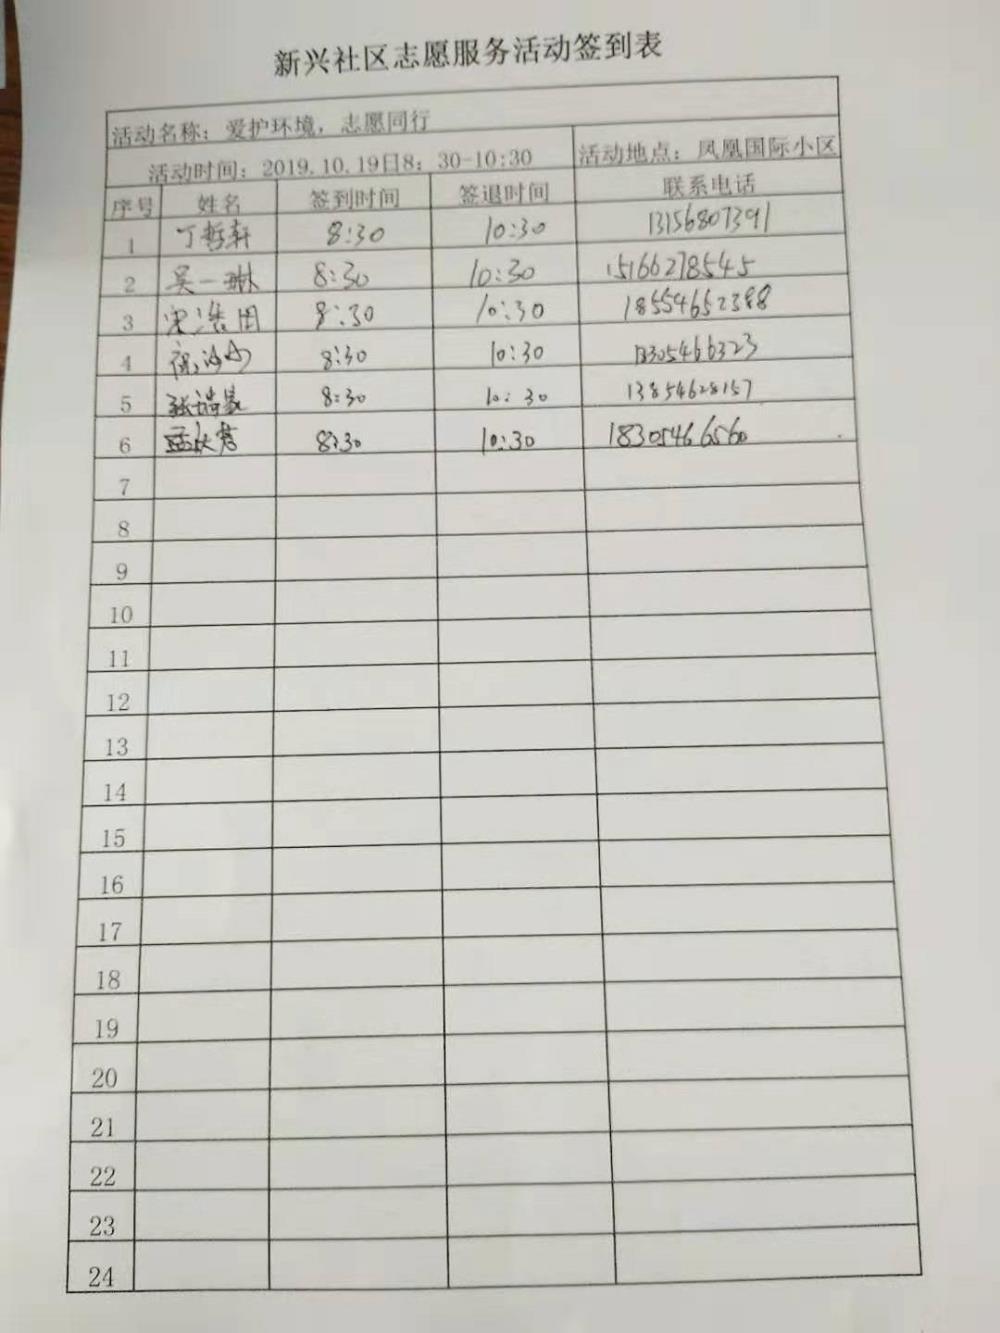 新兴社区志愿服务活动签到表
活动名称：爱护环境，志愿同行
活动时间：2019.10.19日8：30-10:30 活动地点：凤凰国际小区
序号 姓名 签到时间 签退时间 联系电话
1 丁哲轩 8:30 10:30 13156807391
2 吴一琳 8:30 10:30 15166278545
3 8:30 10:30 18554652388
4 8:30 10:30 13305466323
5 8:30 10:30 13854628157
6 8:30 10:30 18305466560
7
8
9
10
11
12
13
14
15
16
17
18
19
20
21
22
23
24